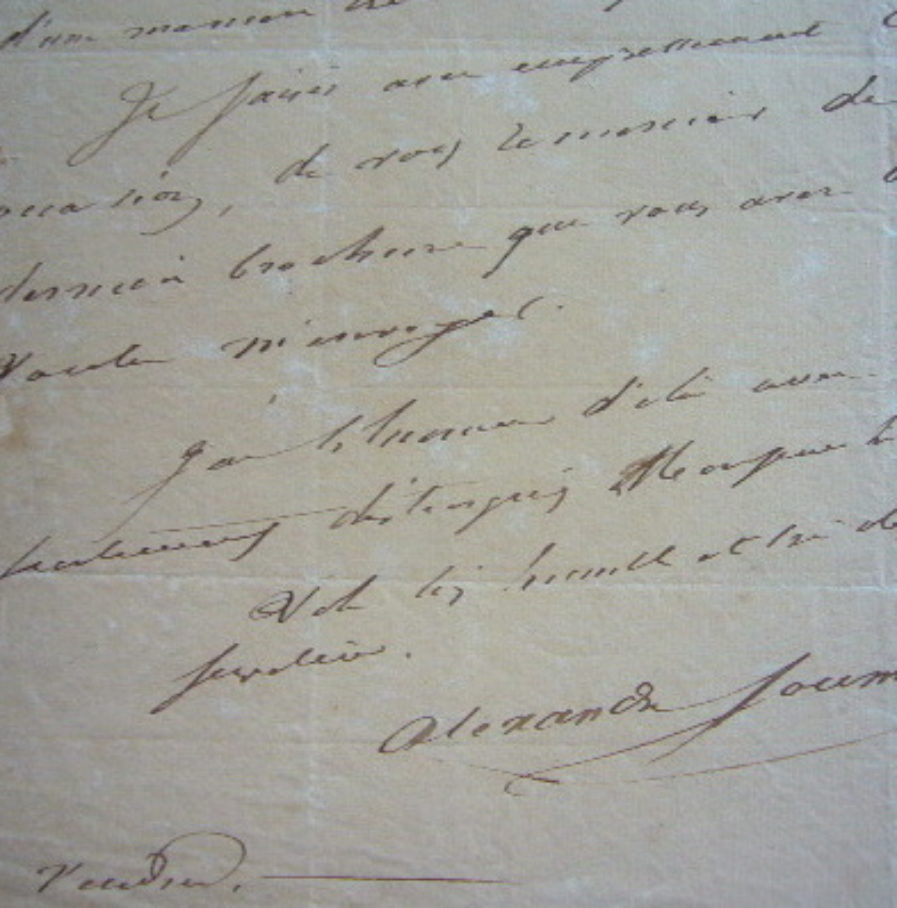 d'une manière
Je saisis avec empressement
occasion, de vous remercier de
dernière brochure que vous avez
voulu m'envoyer.
J'ai l'honneur d'être avec
distingués
Votre très humble et très
serviteur.
Alexandre Soum
Vendredi.